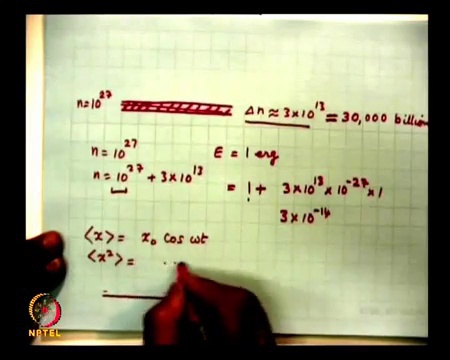 n=10²⁷ Δn ≈ 3×10¹³ = 30,000 billion
n = 10²⁷ E = 1 erg
n = 10²⁷ + 3×10¹³ = 1 + 3×10¹³ × 10⁻²⁷ × 1
3×10⁻¹⁴
⟨x⟩ = x₀ cos ωt
⟨x²⟩ =
NPTEL